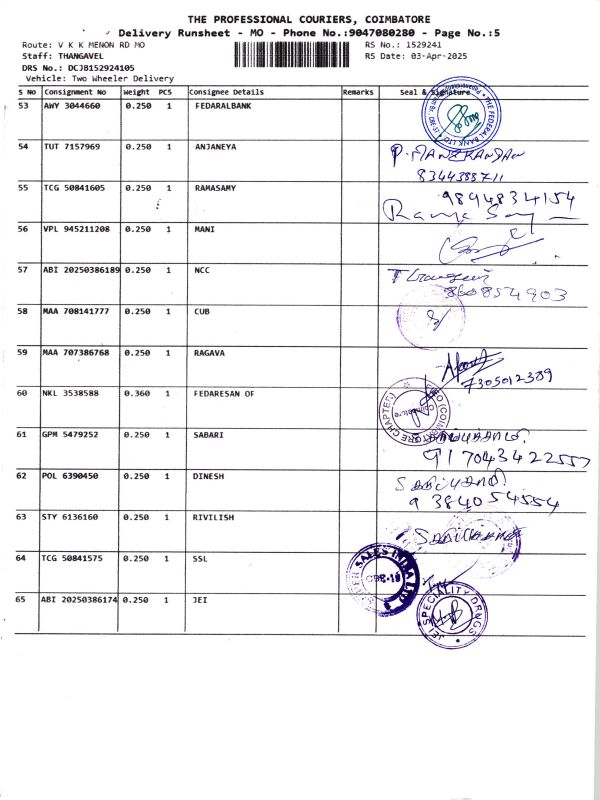 THE PROFESSIONAL COURIERS, COIMBATORE
Delivery Runsheet - MO - Phone No.:9047080280 - Page No.:5
Route: V K K MENON RD MO RS No.: 1529241
Staff: THANGAVEL RS Date: 03-Apr-2025
DRS No.: DCJB152924105
Vehicle: Two Wheeler Delivery
S No Consignment No Weight PCS Consignee Details Remarks Seal & Signature
53 AWY 3044660 0.250 1 FEDARALBANK
THE FEDERAL BANK LTD
54 TUT 7157969 0.250 1 ANJANEYA P. MANIKANDAN
8344388711
55 TCG 50841605 0.250 1 RAMASAMY 9894834154
Rama Samy
56 VPL 945211208 0.250 1 MANI
57 ABI 20250386189 0.250 1 NCC
8608854903
58 MAA 708141777 0.250 1 CUB
59 MAA 707386768 0.250 1 RAGAVA
7305012389
60 NKL 3538588 0.360 1 FEDARESAN OF
(COIMBATORE CHAPTER)
Coimbatore
61 GPM 5479252 0.250 1 SABARI
917043422557
62 POL 6390450 0.250 1 DINESH
9384054554
63 STY 6136160 0.250 1 RIVILISH
64 TCG 50841575 0.250 1 SSL
SALES INDIA
CBE-18
65 ABI 20250386174 0.250 1 JEI
JEI SPECIALITY DRUGS